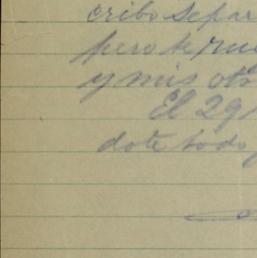 cribo separ
pero te rue
y mis otr
El 29
dote todo